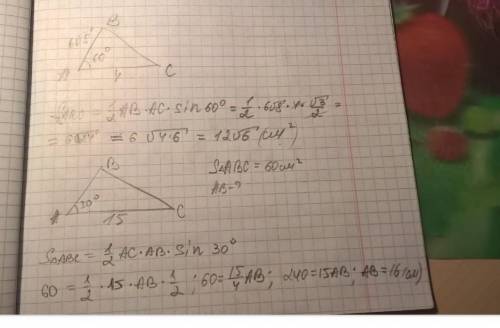 B
6√8 60°
A 4 C
S△ABC = 1/2 AB · AC · sin 60° = 1/2 · 6√8 · 4 · √3/2 =
= = 6 √4·6 = 12√6 (см²)
B S△ABC = 60 см²
AB - ?
30°
A 15 C
S△ABC = 1/2 AC · AB · sin 30°
60 = 1/2 · 15 · AB · 1/2 ; 60 = 15/4 AB ; 240 = 15AB ; AB = 16 (см)